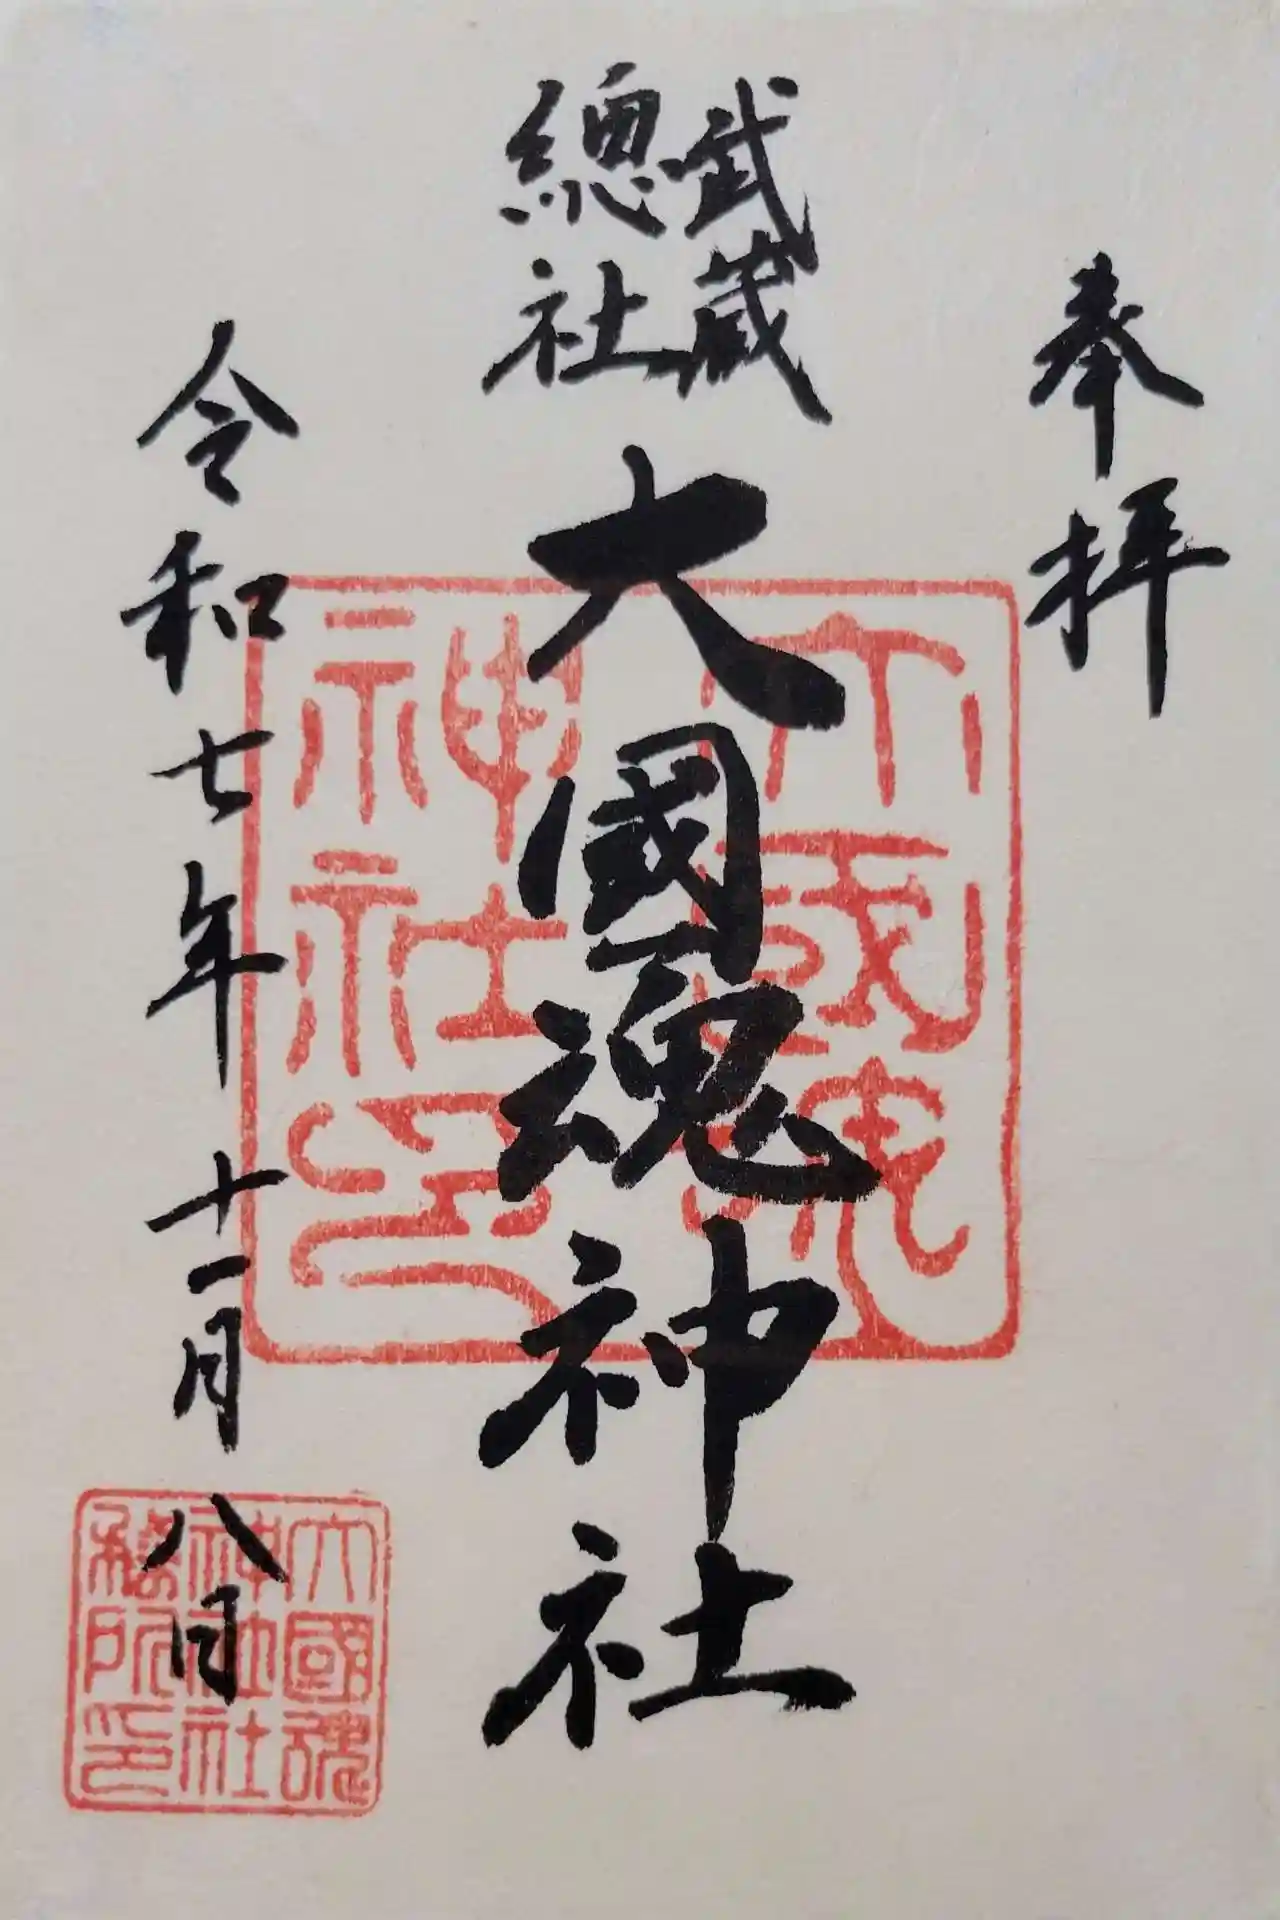 奉拝
武蔵
總社
大國魂神社
令和七年十一月八日
大國魂
神社印
大國魂
神社社
務所印